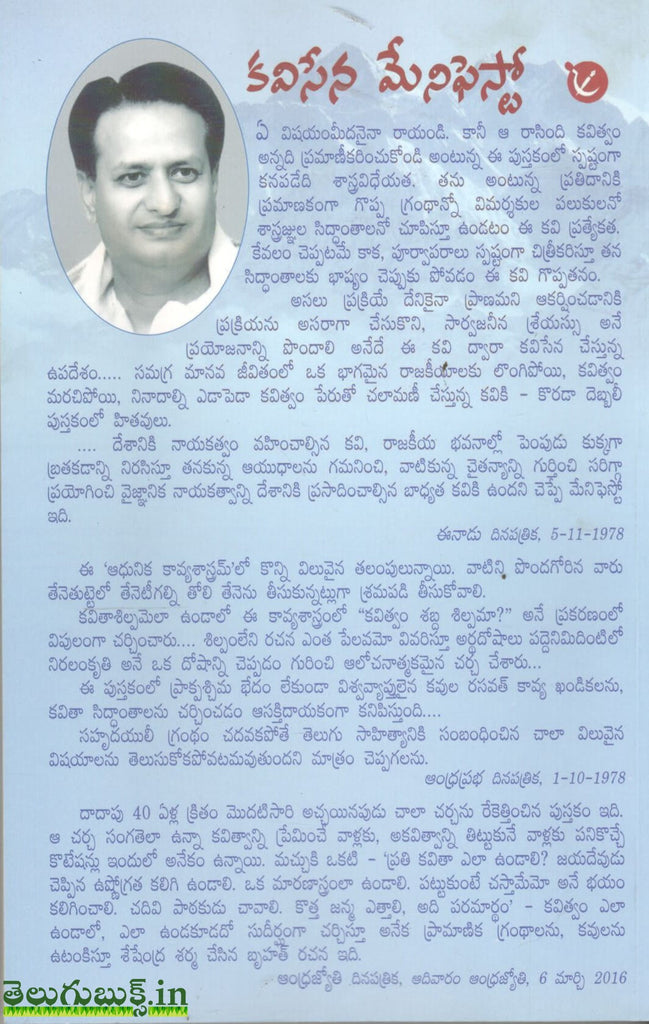 కవిసేన మేనిఫెస్టో
ఏ విషయంమీదనైనా రాయండి. కానీ ఆ రాసింది కవిత్వం
అన్నది ప్రమాణీకరించుకోండి అంటున్న ఈ పుస్తకంలో స్పష్టంగా
కనపడేది శాస్త్రవిధేయత. తను అంటున్న ప్రతిదానికి
ప్రమాణకంగా గొప్ప గ్రంథాన్నో విమర్శకుల పలుకులనో
శాస్త్రజ్ఞుల సిద్ధాంతాలనో చూపిస్తూ ఉండటం ఈ కవి ప్రత్యేకత.
కేవలం చెప్పటమే కాక, పూర్వాపరాలు స్పష్టంగా చిత్రీకరిస్తూ తన
సిద్ధాంతాలకు భాష్యం చెప్పుకు పోవడం ఈ కవి గొప్పతనం.
అసలు ప్రక్రియే దేనికైనా ప్రాణమని ఆకర్షించడానికి
ప్రక్రియను అసరాగా చేసుకొని, సార్వజనీన శ్రేయస్సు అనే
ప్రయోజనాన్ని పొందాలి అనేదే ఈ కవి ద్వారా కవిసేన చేస్తున్న
ఉపదేశం..... సమగ్ర మానవ జీవితంలో ఒక భాగమైన రాజకీయాలకు లొంగిపోయి, కవిత్వం
మరచిపోయి, నినాదాల్ని ఎడాపెడా కవిత్వం పేరుతో చలామణీ చేస్తున్న కవికి - కొరడా దెబ్బలీ
పుస్తకంలో హితవులు.
.... దేశానికి నాయకత్వం వహించాల్సిన కవి, రాజకీయ భవనాల్లో పెంపుడు కుక్కగా
బ్రతకడాన్ని నిరసిస్తూ తనకున్న ఆయుధాలను గమనించి, వాటికున్న చైతన్యాన్ని గుర్తించి సరిగ్గా
ప్రయోగించి వైజ్ఞానిక నాయకత్వాన్ని దేశానికి ప్రసాదించాల్సిన బాధ్యత కవికి ఉందని చెప్పే మేనిఫెస్టో
ఇది.
ఈనాడు దినపత్రిక, 5-11-1978
ఈ 'ఆధునిక కావ్యశాస్త్రమ్'లో కొన్ని విలువైన తలంపులున్నాయి. వాటిని పొందగోరిన వారు
తేనెతుట్టెలో తేనెటీగల్ని తోలి తేనెను తీసుకున్నట్లుగా శ్రమపడి తీసుకోవాలి.
కవితాశిల్పమెలా ఉండాలో ఈ కావ్యశాస్త్రంలో "కవిత్వం శబ్ద శిల్పమా?" అనే ప్రకరణంలో
విపులంగా చర్చించారు.... శిల్పంలేని రచన ఎంత పేలవమో వివరిస్తూ అర్థదోషాలు పద్దెనిమిదింటిలో
నిరలంకృతి అనే ఒక దోషాన్ని చెప్పడం గురించి ఆలోచనాత్మకమైన చర్చ చేశారు...
ఈ పుస్తకంలో ప్రాక్పశ్చిమ భేదం లేకుండా విశ్వవ్యాప్తులైన కవుల రసవత్ కావ్య ఖండికలను,
కవితా సిద్ధాంతాలను చర్చించడం ఆసక్తిదాయకంగా కనిపిస్తుంది....
సహృదయులీ గ్రంథం చదవకపోతే తెలుగు సాహిత్యానికి సంబంధించిన చాలా విలువైన
విషయాలను తెలుసుకోకపోవటమవుతుందని మాత్రం చెప్పగలను.
ఆంధ్రప్రభ దినపత్రిక, 1-10-1978
దాదాపు 40 ఏళ్ల క్రితం మొదటిసారి అచ్చయినపుడు చాలా చర్చను రేకెత్తించిన పుస్తకం ఇది.
ఆ చర్చ సంగతెలా ఉన్నా కవిత్వాన్ని ప్రేమించే వాళ్లకు, అకవిత్వాన్ని తిట్టుకునే వాళ్లకు పనికొచ్చే
కొటేషన్లు ఇందులో అనేకం ఉన్నాయి. మచ్చుకి ఒకటి - 'ప్రతి కవితా ఎలా ఉండాలి? జయదేవుడు
చెప్పిన ఉష్ణోగ్రత కలిగి ఉండాలి. ఒక మారణాస్త్రంలా ఉండాలి. పట్టుకుంటే చస్తామేమో అనే భయం
కలిగించాలి. చదివి పాఠకుడు చావాలి. కొత్త జన్మ ఎత్తాలి, అది పరమార్థం' - కవిత్వం ఎలా
ఉండాలో, ఎలా ఉండకూడదో సుదీర్ఘంగా చర్చిస్తూ అనేక ప్రామాణిక గ్రంథాలను, కవులను
ఉటంకిస్తూ శేషేంద్ర శర్మ చేసిన బృహత్ రచన ఇది.
ఆంధ్రజ్యోతి దినపత్రిక, ఆదివారం ఆంధ్రజ్యోతి, 6 మార్చి 2016
తెలుగుబుక్స్.in